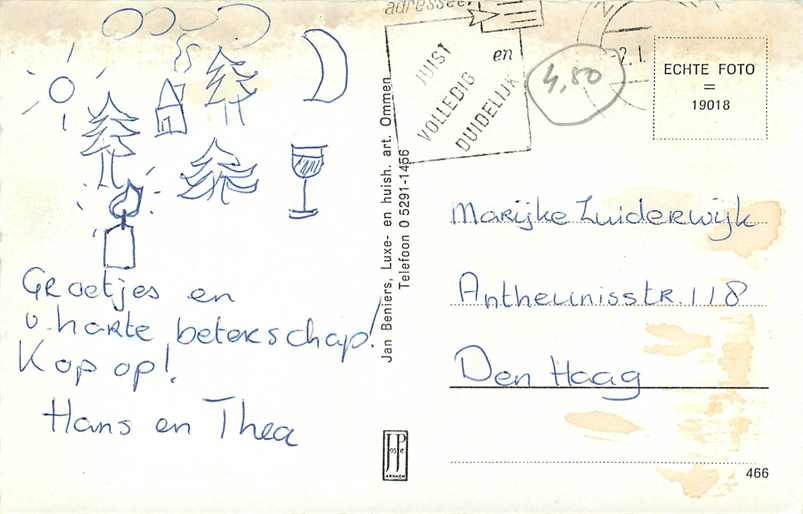 Groetjes en
v. harte beterschap!
Kop op!
Hans en Thea
Jan Beniers, Luxe- en huish. art. Ommen
Telefoon 0 5291-1456
adresseer
JUIST
VOLLEDIG en
DUIDELIJK
4,80
ECHTE FOTO
=
19018
Marijke Zuiderwijk
Antheunisstr. 118
Den Haag
466